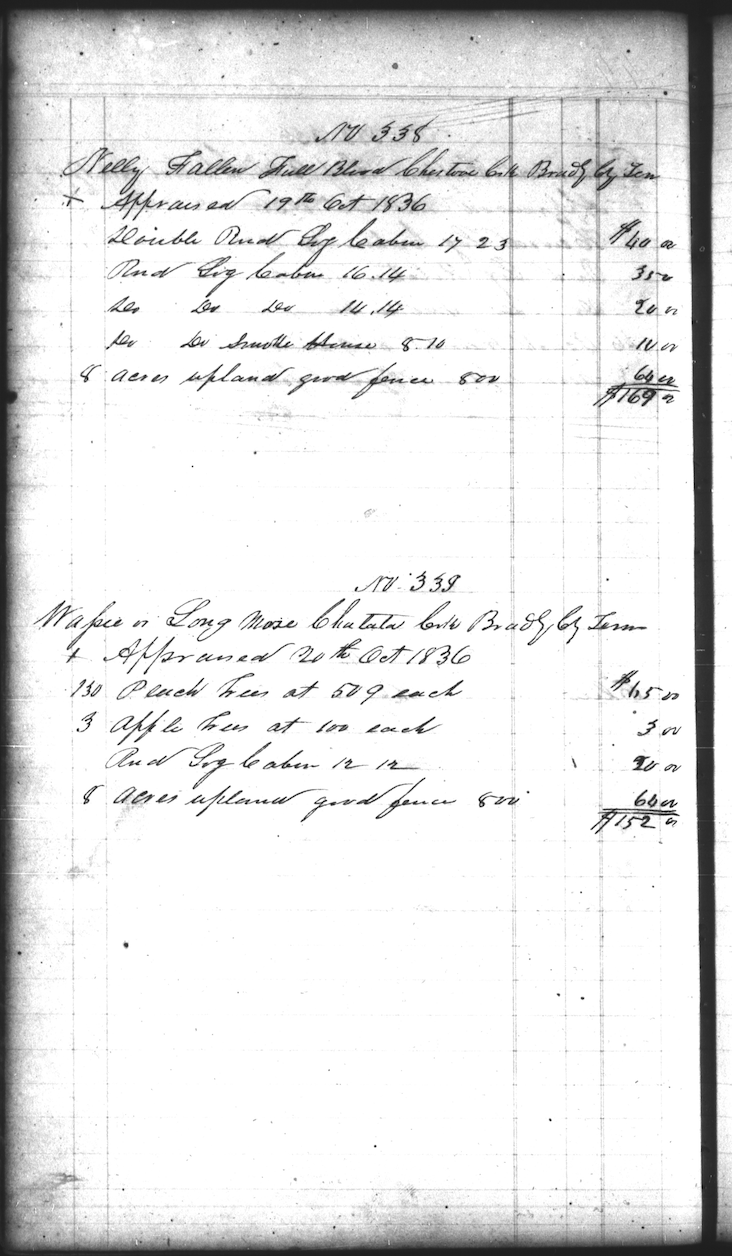 No 338
Nelly Fallen Full Blood Chestooe Crk Bradly Cty Ten
+ Appraised 19th Oct 1836
Double Rnd Log Cabin 17 23 $40 00
Rnd Log Cabin 16.14 35 0
Do Do Do 14.14 20 00
Do Do Smoke House 8.10 10 00
8 acres upland good fence 800 64 00
$169 0
No. 339
or Long Nose Chatata Crk Bradly Cty Tenn
+ Appraised 20th Oct 1836
130 Peach trees at 50¢ each $65 00
3 Apple trees at 100 each 3 00
Rnd Log Cabin 12 12 20 00
8 acres upland good fence 800 64 00
$152 0